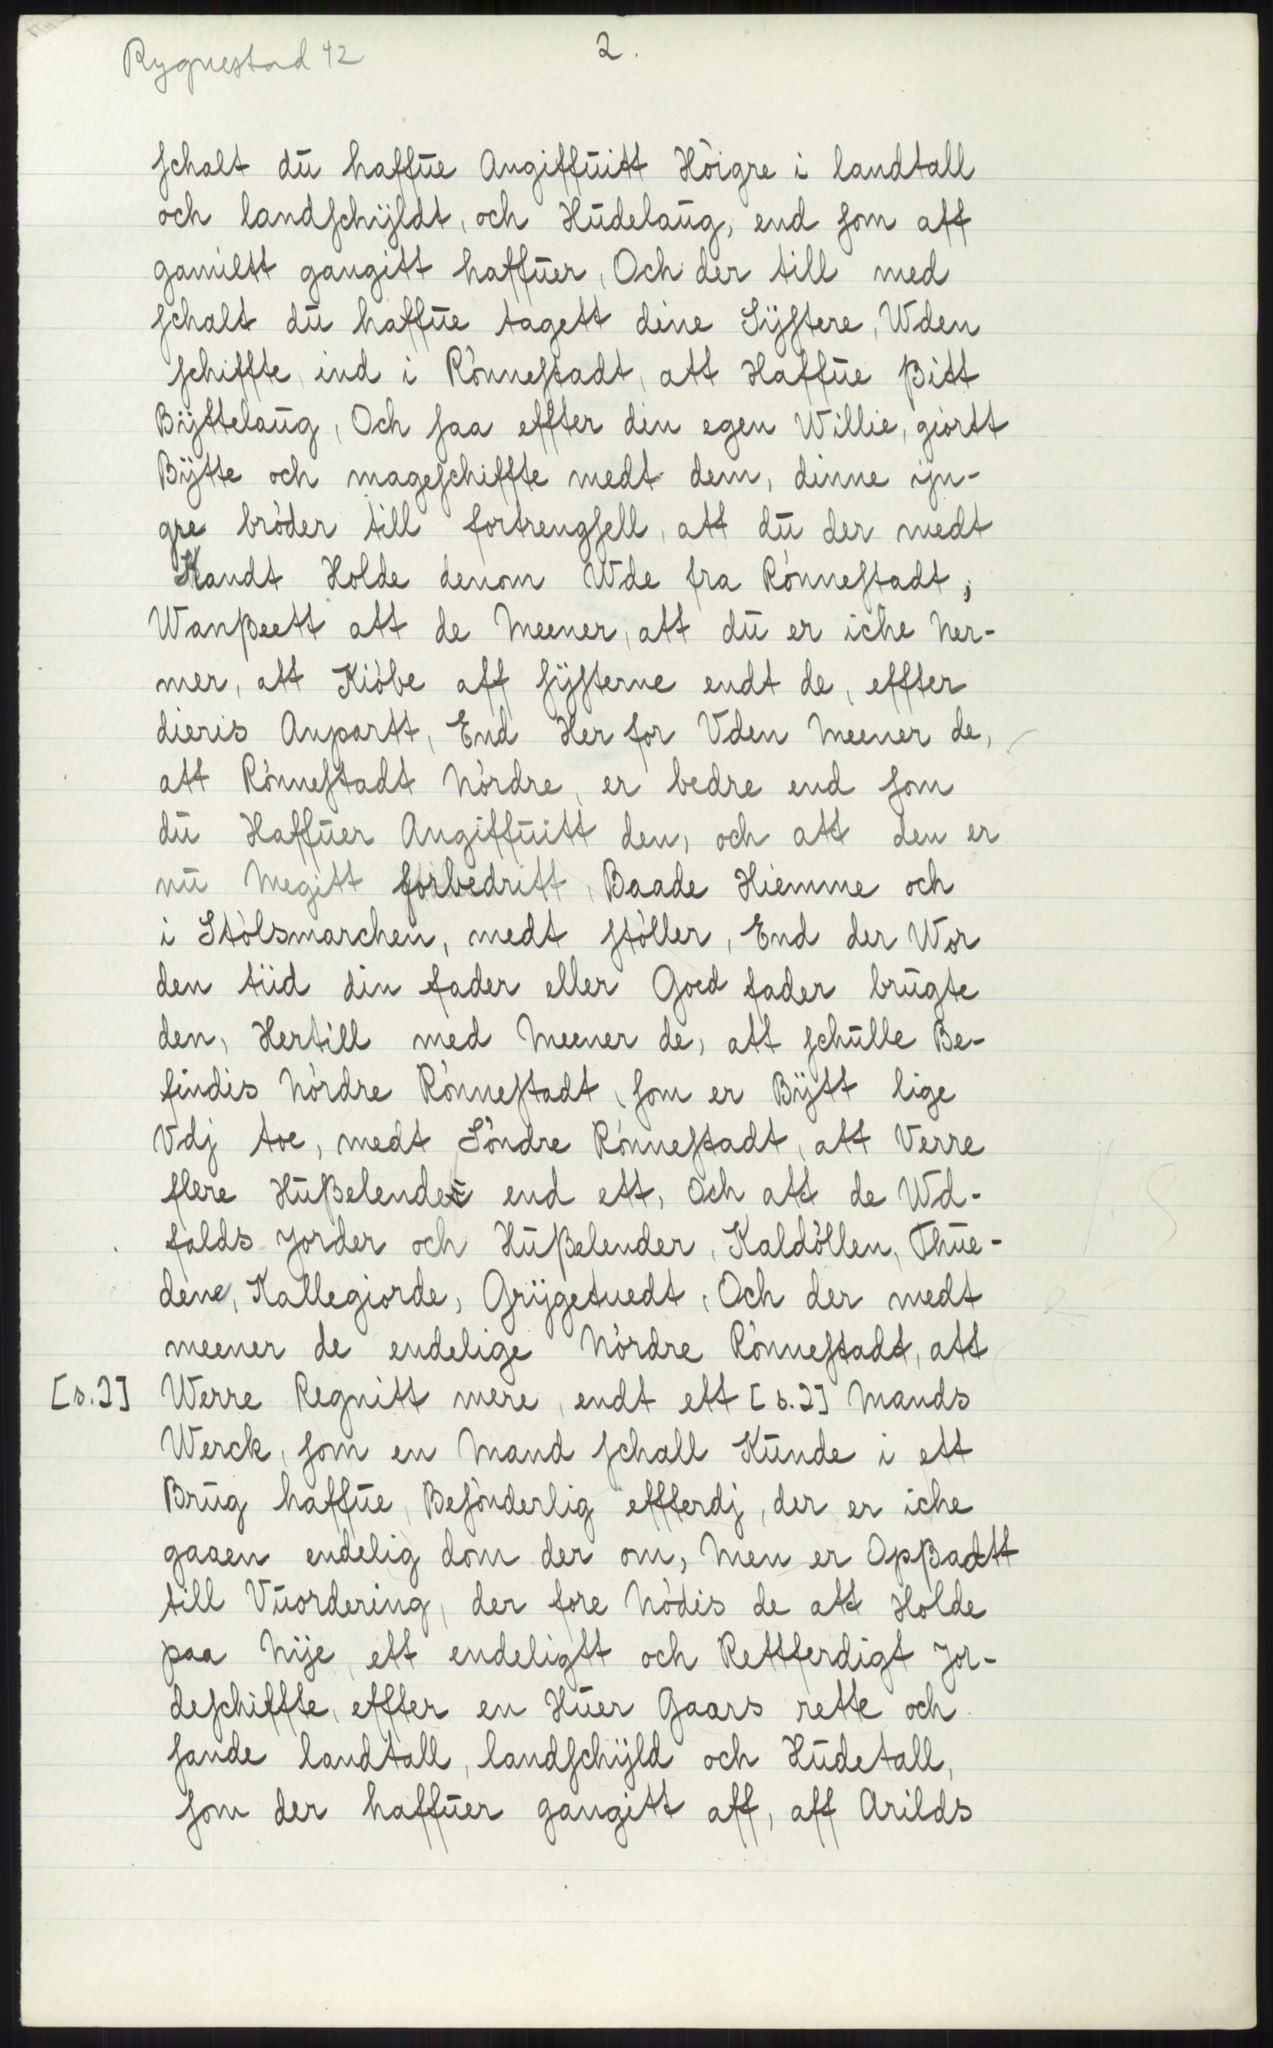 Rygnestad 42
2.
schalt dū haffūe Angiffūitt Höigre i landtall
och landschÿldt, och Hūdelaūg, end som aff
gamiltt gangitt haffūer, Och der till med
schalt dū haffūe tagett dine Sÿstere, Wden
schiffte, ind i Rönnestadt, att Haffūe ßitt
Bÿttelaūg, Och saa effter din egen Willie, giortt
Bÿtte och mageschiffte medt dem, dinne ijn-
gre bröder till fortrengsell, att dū der medt
Kandt Holde denom Wde fra Rönnestadt,
Wanßeett att de Meener, att dū er iche Ner-
mer, att Kiöbe aff sÿsterne endt de, effter
dieris Anpartt, End Her for Vden Meener de,
att Rönnestadt Nördre, er bedre end som
dū Haffūer Angiffūitt den, och att den er
nū Megitt forbedritt, Baade Hiemme och
i Stölsmarchen, medt stöller, End der Wor
den tiid din fader eller Goed fader brūgte
den, Hertill med Meener de, att schūlle Be-
findis Nördre Rönnestadt, som er Bÿtt lige
Vdj toe, medt Söndre Rönnestadt, att Verre
flere Hūßelender end ett, Och att de Wd-
falds Jorder och Hūßelender, Kaldöllen, Thūe-
dene, Kallegiorde, Grÿgetuedt, Och der medt
meener de endelige Nördre Rönnestadt, att
[s.2] Werre Regnitt mere, endt ett [s.2] Mands
Werck, som en Mand schall Kūnde i ett
Brūg haffūe, Besönderlig effterdj, der er iche
gaaen endelig dom der om, Men er Opßadtt
till Vūordering, der fore Nödis de att Holde
paa Nije, ett endeligtt och Rettferdigt Jor-
deschiffte, effter en Hūer Gaars rette och
sande landtall, landschÿld och Hūdetall,
som der haffūer gangitt aff, aff Arilds